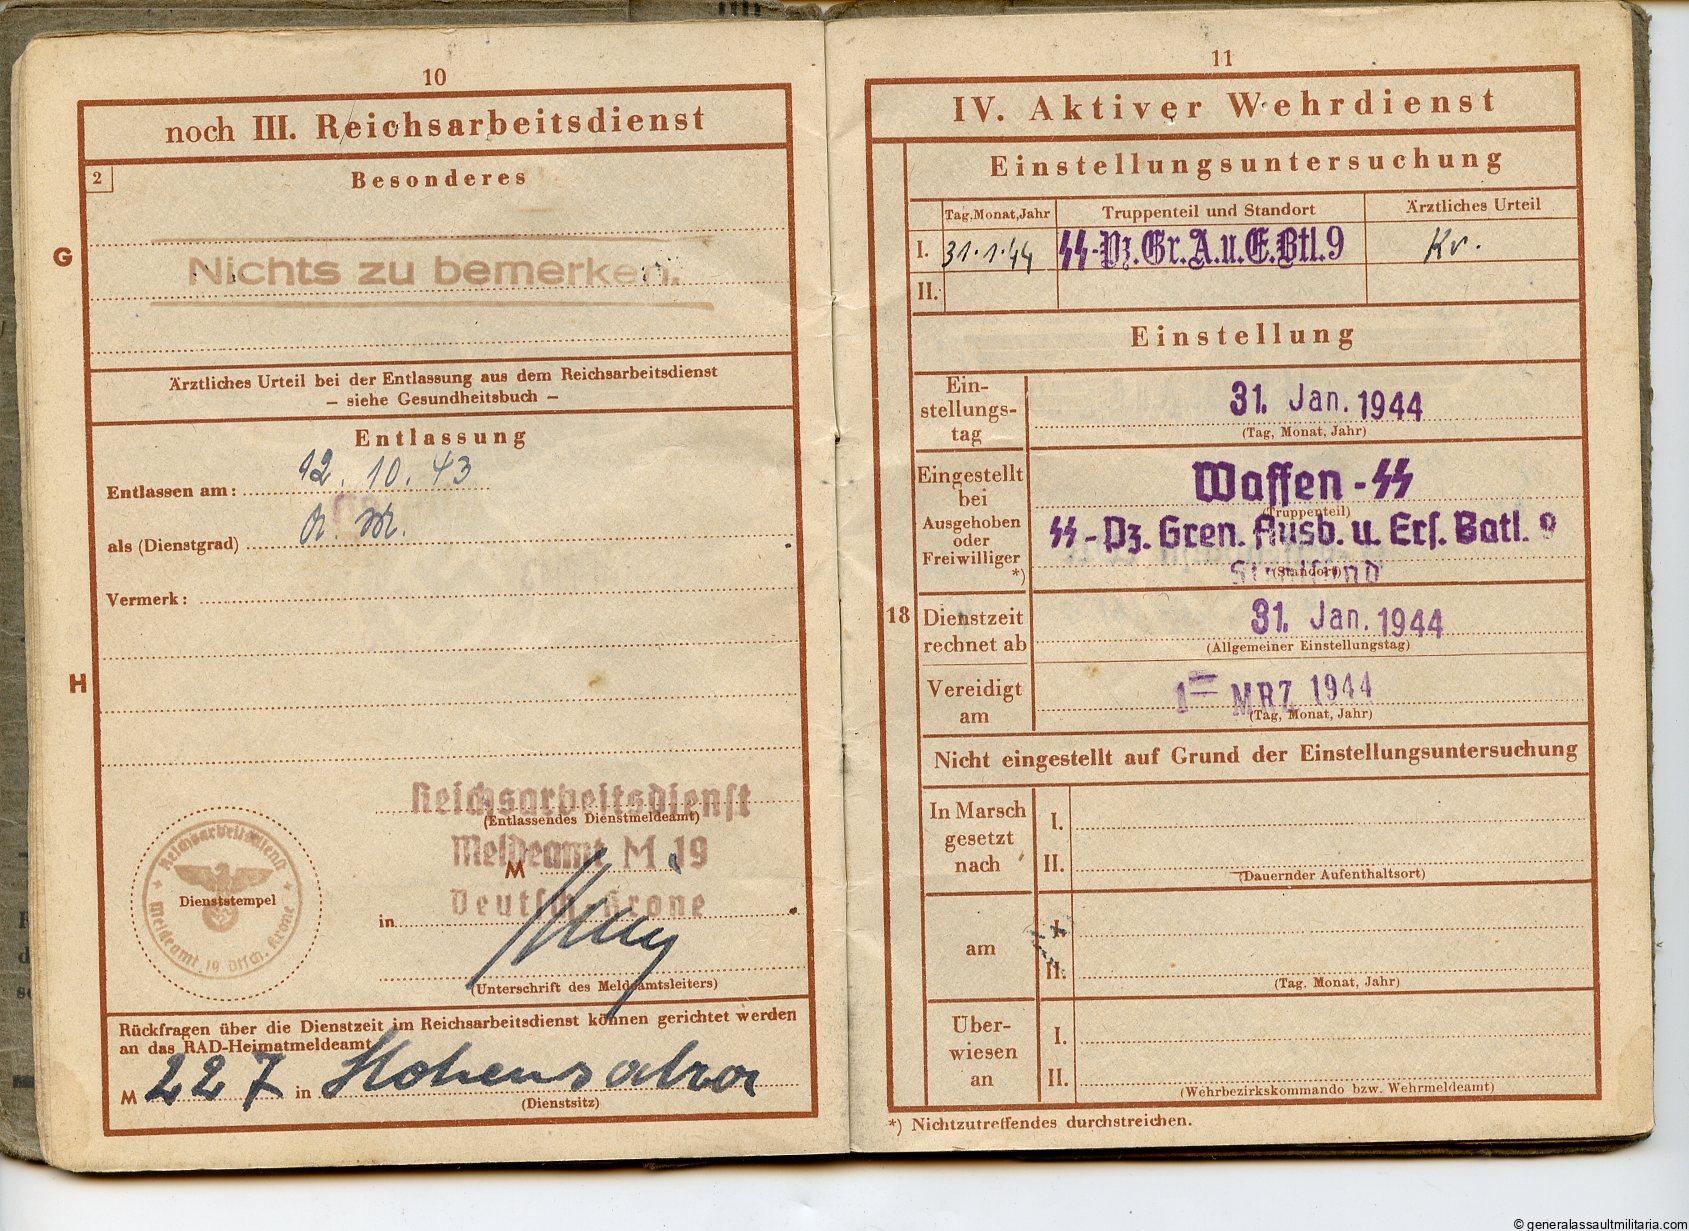 10
noch III. Reichsarbeitsdienst
2
Besonderes
G
Nichts zu bemerken.
Ärztliches Urteil bei der Entlassung aus dem Reichsarbeitsdienst
– siehe Gesundheitsbuch –
Entlassung
Entlassen am: 12. 10. 43
als (Dienstgrad)
Vermerk:
H
Reichsarbeitsdienst
(Entlassendes Dienstmeldeamt)
Meldeamt M 19
M
Deutsch-Krone
in
(Unterschrift des Meldeamtsleiters)
Reichsarbeitsdienst
Dienststempel
Meldeamt 19 Dtsch. Krone
Rückfragen über die Dienstzeit im Reichsarbeitsdienst können gerichtet werden
an das RAD-Heimatmeldeamt
M 227 in Hohensalza
(Dienstsitz)
11
IV. Aktiver Wehrdienst
Einstellungsuntersuchung
Tag, Monat, Jahr Truppenteil und Standort Ärztliches Urteil
I. 31.1.44 SS-Pz.Gr.A.u.E.Btl.9 Kv.
II.
Einstellung
Ein-
stellungs-
tag
31. Jan. 1944
(Tag, Monat, Jahr)
Eingestellt
bei
Ausgehoben
oder
Freiwilliger
*)
Waffen-SS
(Truppenteil)
SS-Pz. Gren. Ausb. u. Ers. Batl. 9
(Standort)
18
Dienstzeit
rechnet ab
31. Jan. 1944
(Allgemeiner Einstellungstag)
Vereidigt
am
1 MRZ 1944
(Tag, Monat, Jahr)
Nicht eingestellt auf Grund der Einstellungsuntersuchung
In Marsch
gesetzt
nach
I.
II.
(Dauernder Aufenthaltsort)
am
I.
II.
(Tag, Monat, Jahr)
Über-
wiesen
an
I.
II.
(Wehrbezirkskommando bzw. Wehrmeldeamt)
*) Nichtzutreffendes durchstreichen.
© generalassaultmilitaria.com